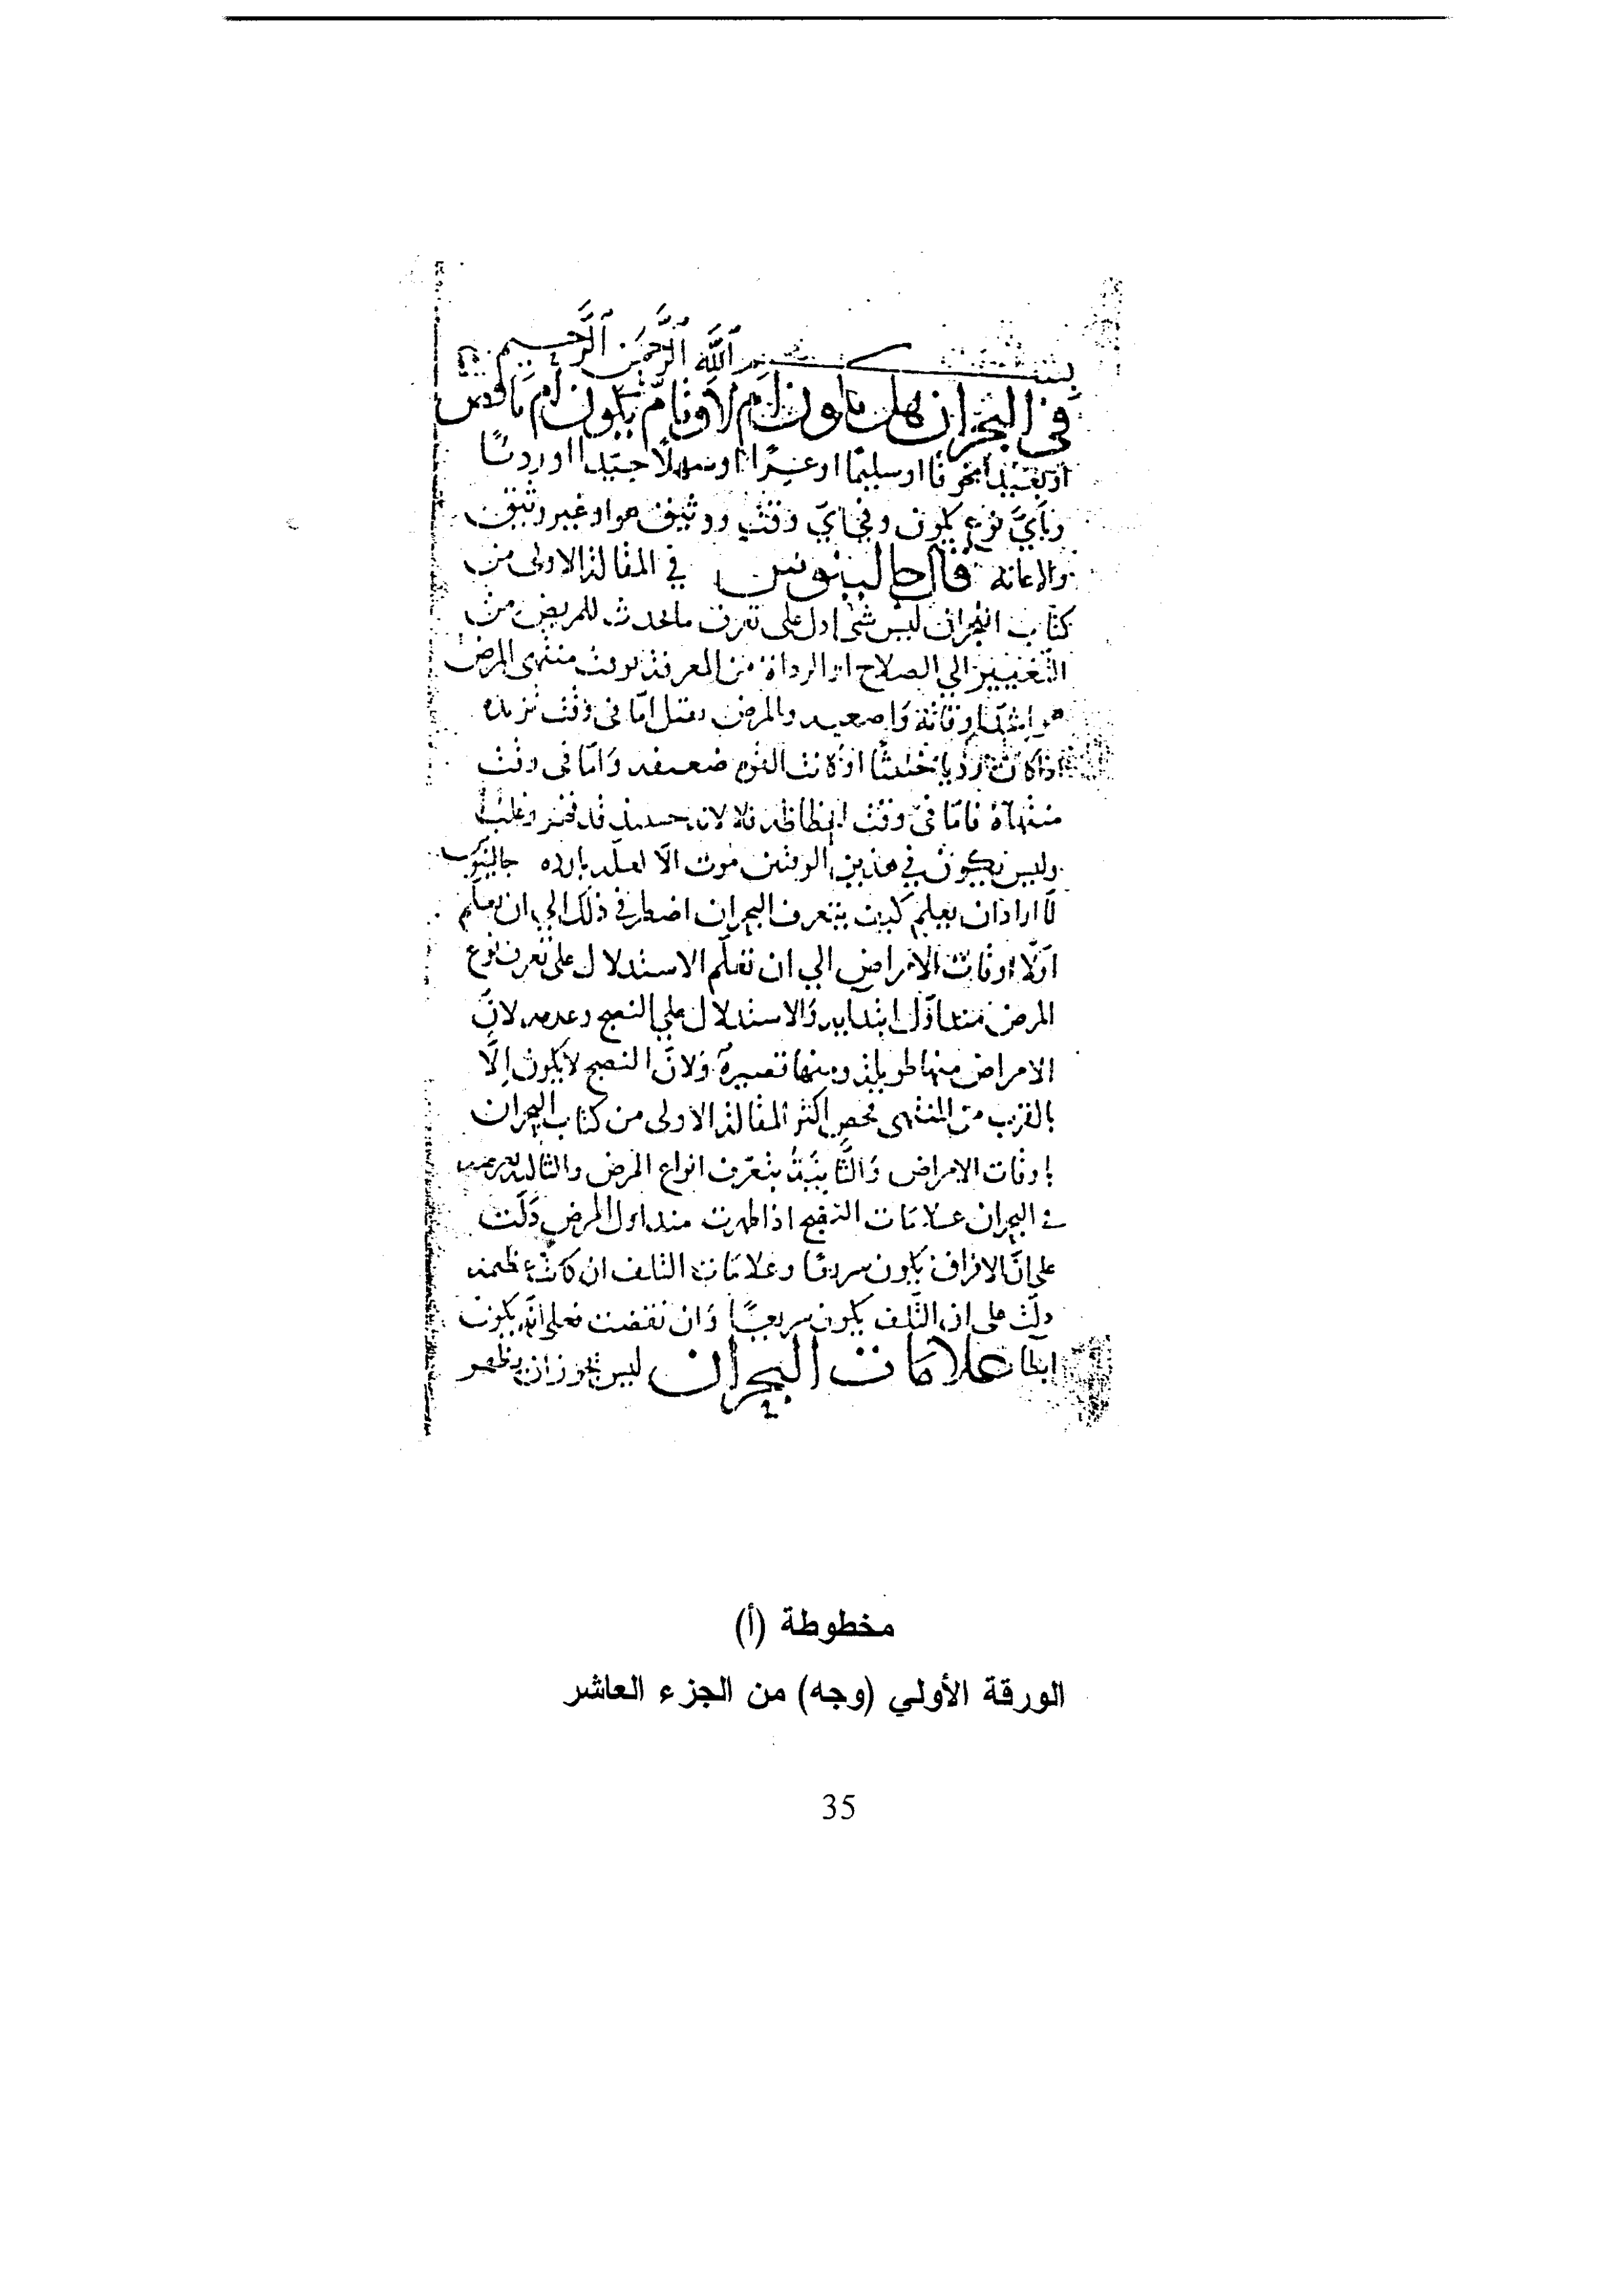 بسم الله الرحمن الرحيم
في البحران هل يكون ام لا وتام يكون ام ناقص
او بعيدا مخوفا او سليما او عسرا او سهلا جيدا او رديئا
وبأيّ نوع يكون وفي ايّ وقت ووثيق هو او غير وثيق
والاعانة قال جالينوس في المقالة الاولى من
كتاب البحران ليس شئ ادل على تعرف ما يحدث للمريض من
التغيير الي الصلاح او الرداة من المعرفة بوقت منتهى المرض
هو اشد اوقاته واصعبه والمرض يقتل امّا فى وقت تزيده
اذا كان رديا خبيثا او كانت القوة ضعيفه وَامّا فى وقت
منتهاه فامّا فى وقت انحطاطه فلا لانه حينئذ قد قهر وغلب
وليس يكون في هذين الوقتين موت الّا لعلة بارده جالينوس
لمّا اراد ان يعلم كيف يتعرف البحران اضطر في ذلك الي ان يعلم
اوّلا اوقات الامراض الي ان تعلّم الاستدلال على تعرف نوع
المرض منذ اوّل ابتدايه وَالاستدلال علي النضج وعدمه لانّ
الامراض منها طويلة ومنها قصيرة وَلانّ النضج لا يكون اِلّا
بالقرب من المنتهى فخص اكثر المقالة الاولى من كتاب البحران
باوقات الامراض وَالثّانية بتعرّف انواع المرض والثالثه
في البحران علامات النضج اذا ظهرت منذ اول المرض دَلّت
على انّ الافراق يكون سريعا وعلامات التلف ان كانت عظيمه
دلّت على ان التّلف يكون سريعًا وَان نقصت فعلى انّه يكون
ابطا علامات البحران ليس يجوز ان يظهر
مخطوطة (أ)
الورقة الأولي (وجه) من الجزء العاشر
35